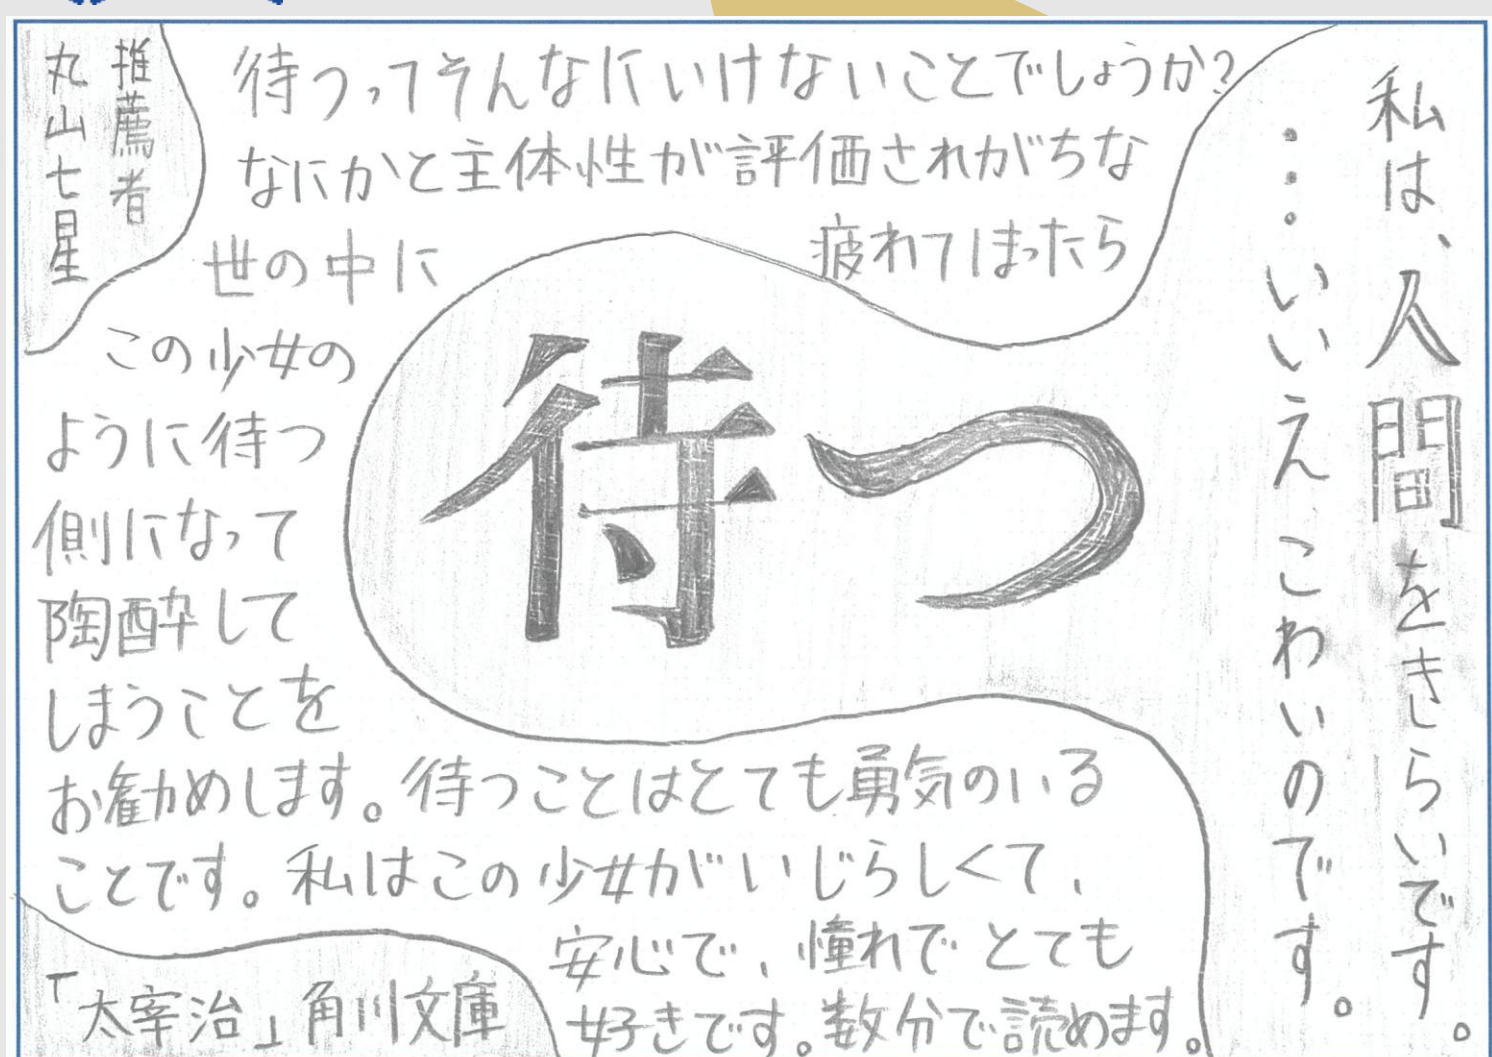 私は、人間をきらいです。
……いいえこわいのです。
待つ
待つってそんなにいけないことでしょうか?
なにかと主体性が評価されがちな
世の中に
疲れてしまったら
この少女の
ように待つ
側になって
陶酔して
しまうことを
お勧めします。待つことはとても勇気のいる
ことです。私はこの少女がいじらしくて、
安心で、憧れで とても
好きです。数分で読めます。
推薦者
丸山七星
「太宰治」角川文庫